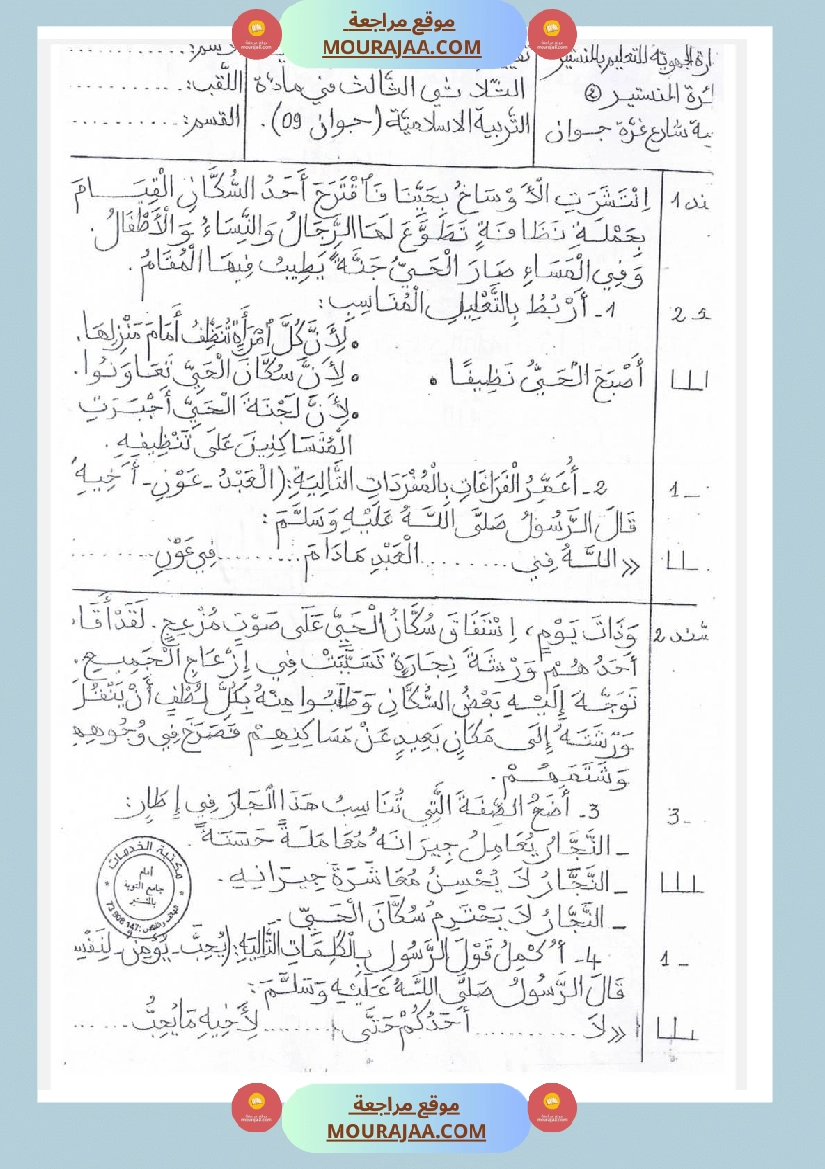 موقع مراجعة
MOURAJAA.COM
الجهوية للتعليم بالمنستير
المنستير
شارع غزة جوان
الثلاثي الثالث في مادة
التربية الاسلامية (جوان 09).
اللقب: ..........
القسم: ..........
اِنْتَشَرَتِ الْأَوْسَاخُ بِحَيِّنَا فَاقْتَرَحَ أَحَدُ السُّكَّانِ الْقِيَامَ
بِحَمْلَةِ نَظَافَةٍ تَطَوَّعَ لَهَا الرِّجَالُ وَالنِّسَاءُ وَالْأَطْفَالُ.
وَفِي الْمَسَاءِ صَارَ الْحَيُّ جَنَّةً يَطِيبُ فِيهَا الْمُقَامُ.
1- أَرْبُطُ بِالتَّعْلِيلِ الْمُنَاسِبِ:
• لِأَنَّ كُلَّ امْرَأَةٍ تُنَظِّفُ أَمَامَ مَنْزِلِهَا.
أَصْبَحَ الْحَيُّ نَظِيفًا • • لِأَنَّ سُكَّانَ الْحَيِّ تَعَاوَنُوا.
• لِأَنَّ لَجْنَةَ الْحَيِّ أَجْبَرَتِ
الْمُتَسَاكِنِينَ عَلَى تَنْظِيفِهِ.
2- أُعَمِّرُ الْفَرَاغَاتِ بِالْمُفْرَدَاتِ التَّالِيَةِ: (الْعَبْدُ - عَوْنِ - أَخِيهِ
قَالَ الرَّسُولُ صَلَّى اللَّهُ عَلَيْهِ وَسَلَّمَ:
« اللَّهُ فِي ......... الْعَبْدِ مَادَامَ ......... فِي عَوْنِ .........
سند 2 وَذَاتَ يَوْمٍ، اِسْتَفَاقَ سُكَّانُ الْحَيِّ عَلَى صَوْتٍ مُزْعِجٍ. لَقَدْ أَقَامَ
أَحَدُهُمْ وَرْشَةَ نِجَارَةٍ تَسَبَّبَتْ فِي إِزْعَاجِ الْجَمِيعِ.
تَوَجَّهَ إِلَيْهِ بَعْضُ السُّكَّانِ وَطَلَبُوا مِنْهُ بِكُلِّ لُطْفٍ أَنْ يَنْقُلَ
وَرْشَتَهُ إِلَى مَكَانٍ بَعِيدٍ عَنْ مَسَاكِنِهِمْ فَصَرَخَ فِي وُجُوهِهِمْ
وَشَتَمَهُمْ.
3- أَضَعُ الصِّفَةَ الَّتِي تُنَاسِبُ هَذَا الْجَارَ فِي إِطَارٍ:
- النَّجَّارُ يُعَامِلُ جِيرَانَهُ مُعَامَلَةً حَسَنَةً.
- النَّجَّارُ لَا يُحْسِنُ مُعَاشَرَةَ جِيرَانِهِ.
- النَّجَّارُ لَا يَحْتَرِمُ سُكَّانَ الْحَيِّ.
مكتبة الخدمات
أمام
جامع التوبة
4- أُكْمِلُ قَوْلَ الرَّسُولِ بِالْكَلِمَاتِ التَّالِيَةِ: (يُحِبَّ - يُؤْمِنُ - لِنَفْسِهِ
قَالَ الرَّسُولُ صَلَّى اللَّهُ عَلَيْهِ وَسَلَّمَ:
« لَا ......... أَحَدُكُمْ حَتَّى ......... لِأَخِيهِ مَا يُحِبُّ .........
موقع مراجعة
MOURAJAA.COM